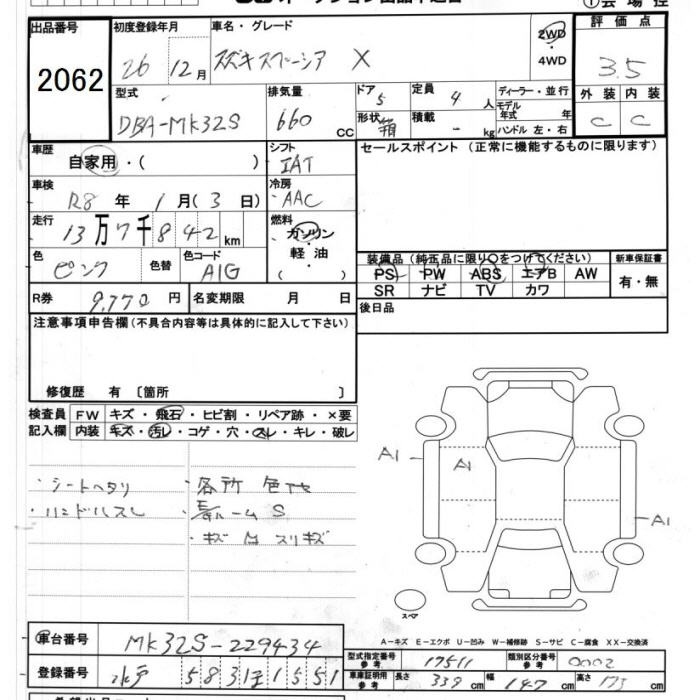 ①会場控
出品番号 2062
初度登録年月 26 12月
車名・グレード スズキスペーシア X
2WD・4WD
評価点 3.5
外装 C 内装 C
型式 DBA-MK32S
排気量 660 CC
ドア 5 定員 4人
形状 箱 積載 - kg
ディーラー・並行
モデル年式 年
ハンドル 左・右
車歴 自家用・( )
シフト IAT
セールスポイント (正常に機能するものに限ります)
車検 R8年 1月(3日)
冷房 AAC
走行 13万7千842km
燃料 ガソリン・軽油 ( )
色 ピンク 色替 色コード A1G
装備品 (純正品に限り○をつけてください) 新車保証書
PS PW ABS エアB AW 有・無
SR ナビ TV カワ
R券 9,770円 名変期限 月 日
後日品
注意事項申告欄(不具合内容等は具体的に記入して下さい)
修復歴 有〔箇所 〕
検査員記入欄 FW キズ・飛石・ヒビ割・リペア跡・×要
内装 キズ・汚レ・コゲ・穴・スレ・キレ・破レ
・シートヘタリ
・ハンドルスレ
・各所 色ヤセ
・キズ 凸 スリキズ
A1 A1
A1
スペア
A-キズ E-エクボ U-凹み W-補修跡 S-サビ C-腐食 XX-交換済
車台番号 MK32S-229434
登録番号 水戸 583 1 1551
型式指定番号 参考 17511 類別区分番号 参考 0002
車庫証明用 参考 長さ 339cm 幅 147cm 高さ 173cm